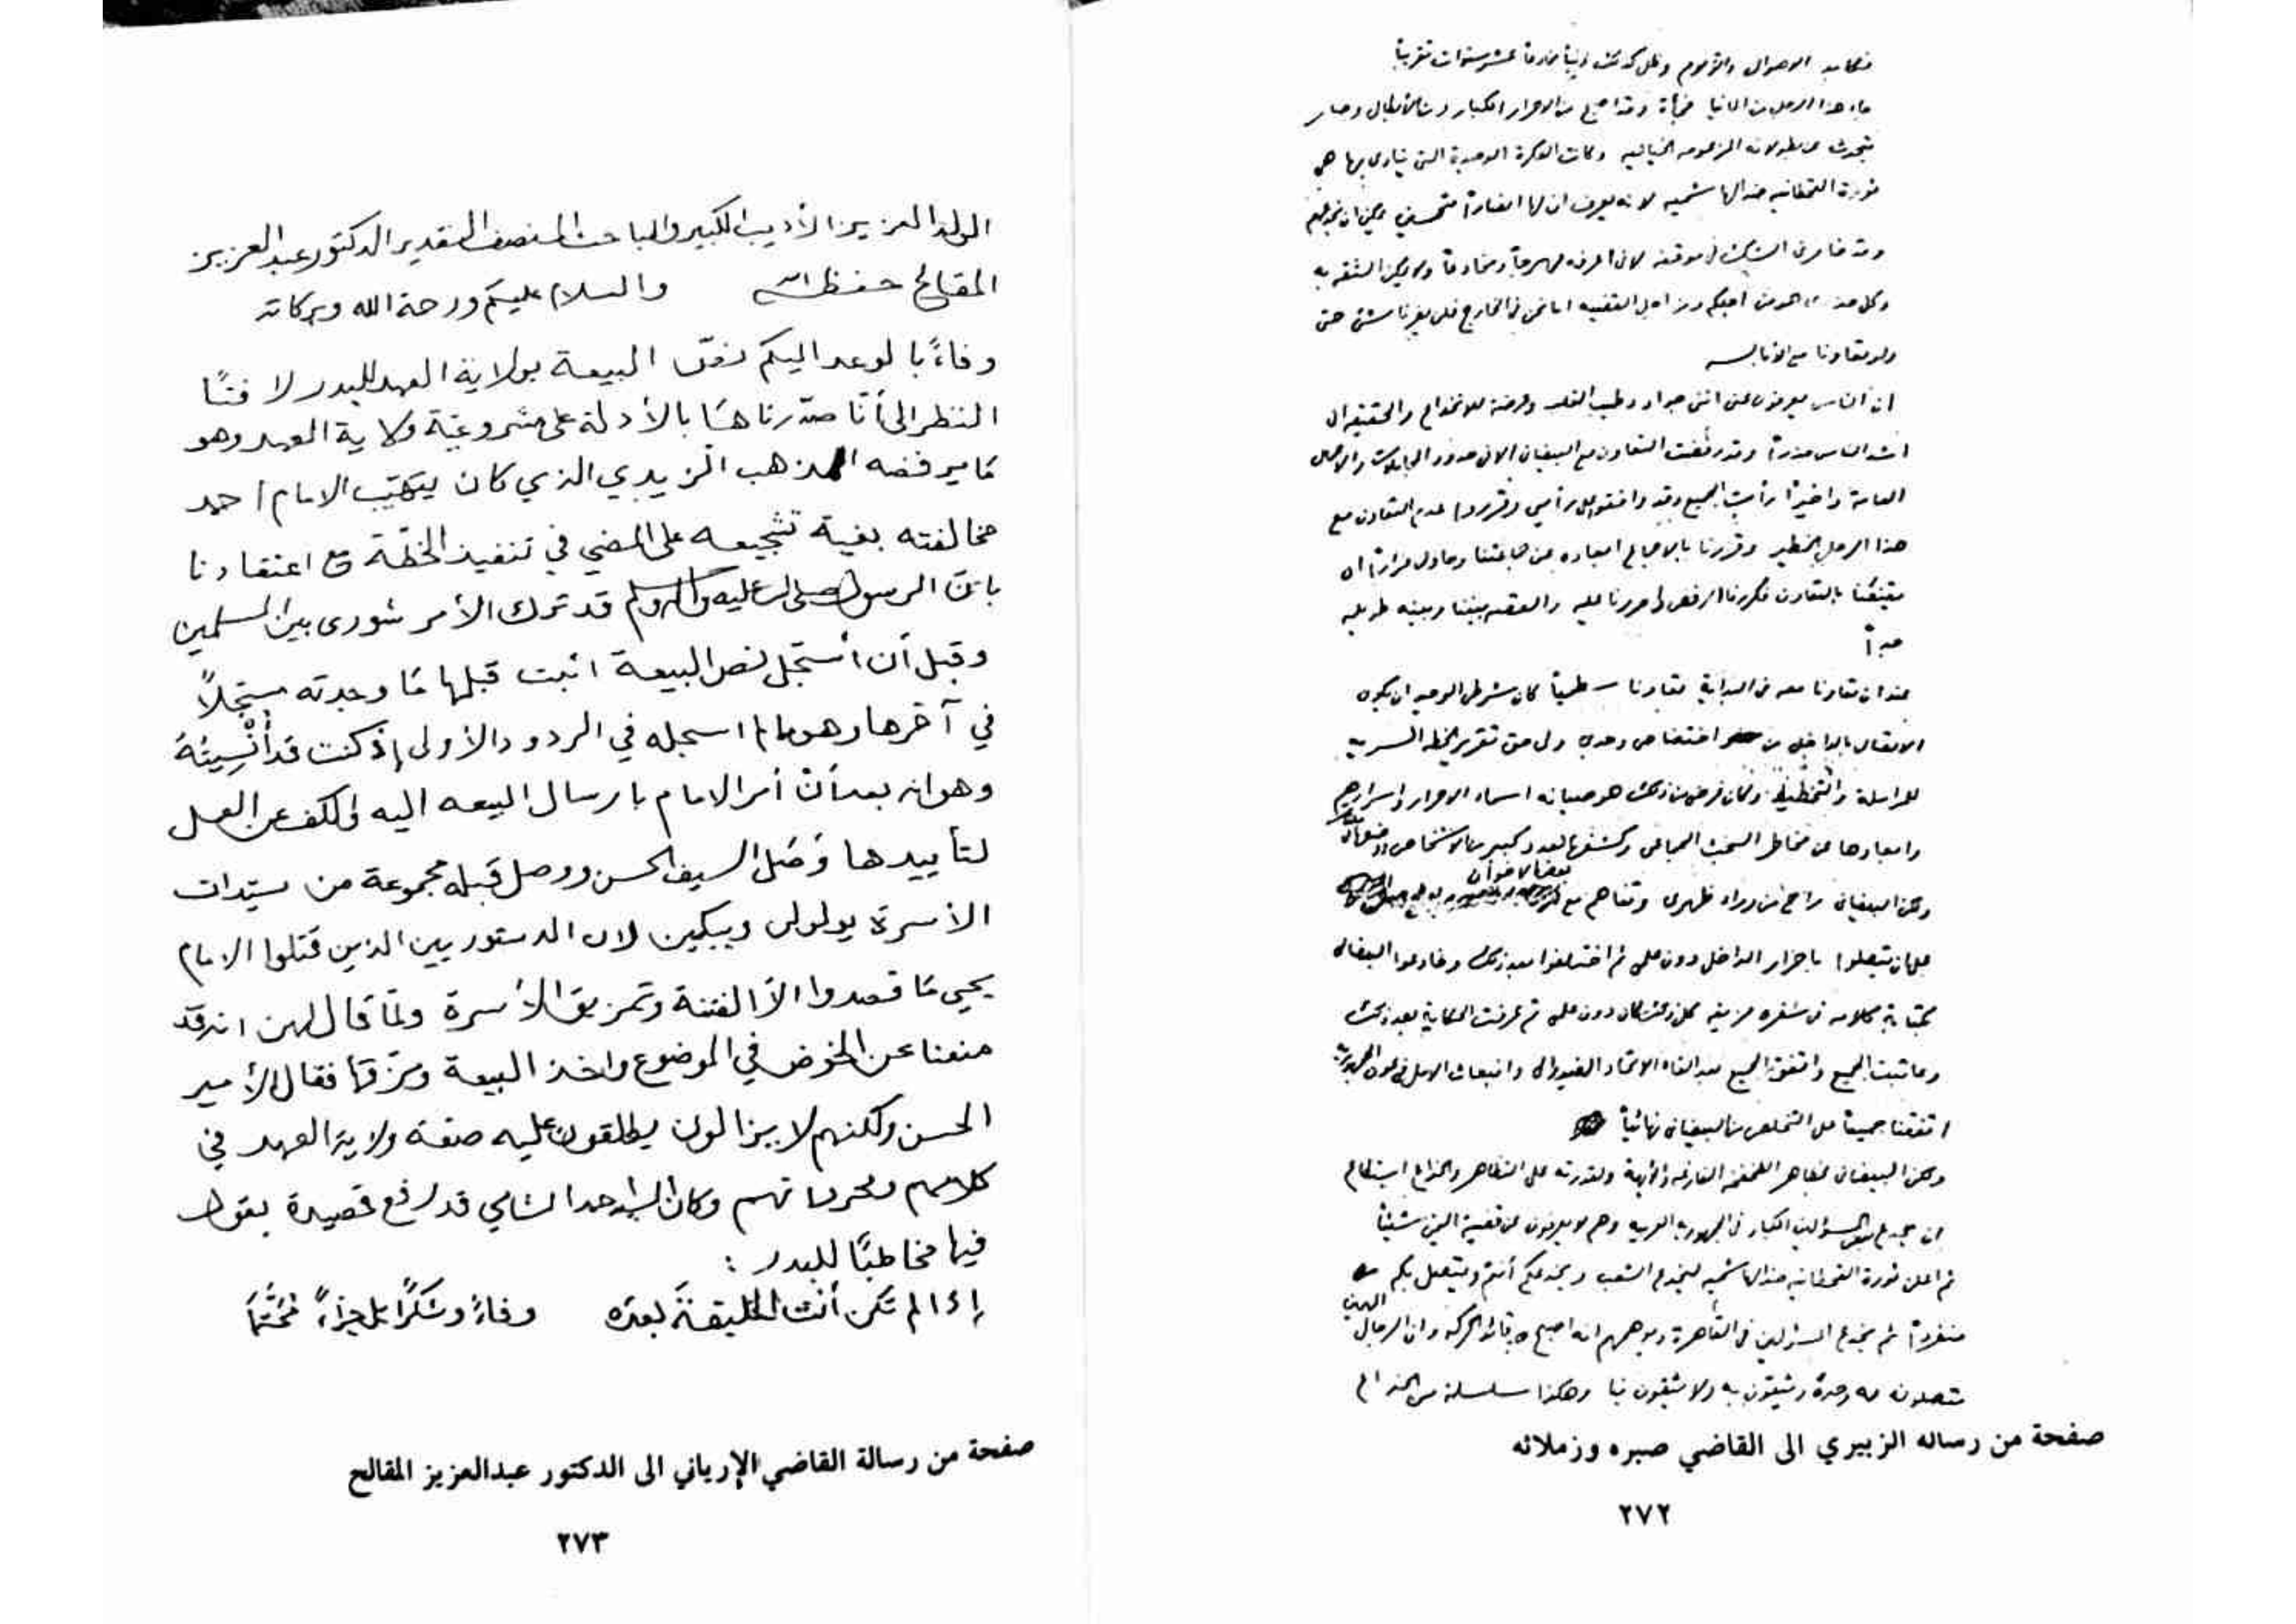 فكابد الاهوال والهموم وظل كذلك عشر سنوات تقريباً
جاء هذا الرجل من المانيا فجأة وقد اصبح من الاحرار الكبار ومن الأبطال وصار
يتحدث عن بطولاته المزعومه الخياليه وكانت الفكرة الوحيدة التي ينادي بها هي
ثورة القحطانيه ضد الهاشميه لانه يعرف ان لها انصاراً متحمسين يمكن ان يخدعهم
وقد خامرني الشك في موقفه لاني اعرفه مهرجاً ومخادعاً ولا يمكن الثقه به
وكل من اجلكم ومن اجل القضيه اما نحن في الخارج فلن يضرنا شيئ حتى
ولو تعاونا مع الأبالسه
ان الناس يعرفون عني انني جواد وطيب القلب وعرضة للانخداع والحقيقه ان
اشد الناس حذراً وقد رفضت التعاون مع البيضاني الا في حدود المجاملات والاعمال
العامة واخيراً رأيت الجميع وقد وافقوا على رأيي وقرروا عدم التعاون مع
هذا الرجل الخطير وقررنا بالاجماع ابعاده عن جماعتنا وحاول مراراً ان
يقنعنا بالتعاون فكررنا الرفض واصررنا عليه والقصه بيننا وبينه طويله
جداً
عند ان تعاونا معه في البداية تعاونا سطحياً كان شرطي الوحيد ان يكون
الاتصال بالداخل من اختصاصي وحدي ولي حق تقرير الخطه السريه
للمراسلة والتخطيط وكان غرضي من ذلك هو صيانه اسماء الاحرار واسرارهم
وابعادها عن مخاطر البحث الجماعي وكشفها لعدد كبير من الاشخاص
ولكن البيضاني راح من وراء ظهري وتفاهم مع بعض الاخوان
على ان يتصلوا باحرار الداخل دون علمي ثم اختلفوا بعد ذلك وخادعوا البيضاني
بكتابة كلامه في شفره مزيفه كل ذلك كان دون علمي ثم عرفت الحكاية بعد ذلك
وعاتبت الجميع واتفق الجميع بعد الغاء الاتحاد الفيدرالي وانبعاث الامل في عون الجمهورية
اتفقنا جميعاً على التخلص من البيضاني نهائياً
ولكن البيضاني بمظاهر الفخفخه الفارغه والأبهة ولقدرته على التظاهر والخداع استطاع
ان يخدع بعض المسؤلين الكبار في الجمهوريه العربيه وهم لا يعرفون عن قضية اليمن شيئاً
ثم اعلن ثورة القحطانيه ضد الهاشميه ليخدع الشعب ويخدعكم أنتم ويتصل بكم
منفرداً ثم يخدع المسؤلين في القاهرة ويوهمهم انه اصبح قائد الحركه وان الرجال
يتصلون به وحده ويثقون به ولا يثقون بنا وهكذا سلسلة من الخداع
صفحة من رساله الزبيري الى القاضي صبره وزملائه
٢٧٢
الولد العزيز الأديب الكبير والباحث المنصف القدير الدكتور عبد العزيز
المقالح حفظه الله والسلام عليكم ورحمة الله وبركاته
وفاءً بالوعد اليكم نصّ البيعة بولاية العهد للبدر لافتًا
النظر الى أنّا صدّرناها بالأدلة على مشروعيّة ولاية العهد وهو
مَا يرفضه المذهب الزيدي الذي كان يتهيّب الامام احمد
مخالفته بغية تشجيعه على المضي في تنفيذ الخطّة مع اعتقادنا
بانّ الرسول صلى الله عليه وآله وسلم قد ترك الأمر شورى بين المسلمين
وقبل أن أُسجّل نص البيعة اثبت قبلها مَا وجدته مسجّلاً
في آخرها وهو ما لم اسجله في الردود الأولى إذ كنت قد أُنْسِيتُهُ
وهو انه بعد أنْ أمر الامام بارسال البيعه اليه والكف عن العمل
لتأييدها وَصَل السيف الحسن ووصل قبله مجموعة من سيّدات
الأسرة يولولن ويبكين لان الدستوريين الذين قتلوا الامام
يحيى مَا قصدوا الاّ الفتنة وتمزيق الأسرة ولمّا قال لهن انه قد
منعنا عن الخوض في الموضوع واخذ البيعة ومزقها فقال الأمير
الحسن ولكنهم لا يزالون يطلقون عليه صفة ولاية العهد في
كلامهم ومحرراتهم وكان السيد احمد الشامي قد رفع قصيدة يقول
فيها مخاطبًا للبدر :
إذا لم تكن أنت الخليفةَ بعدَه وفاءً وشكرًا بل جزاءً مُحَتَّمَا
صفحة من رسالة القاضي الإرياني الى الدكتور عبدالعزيز المقالح
٢٧٣